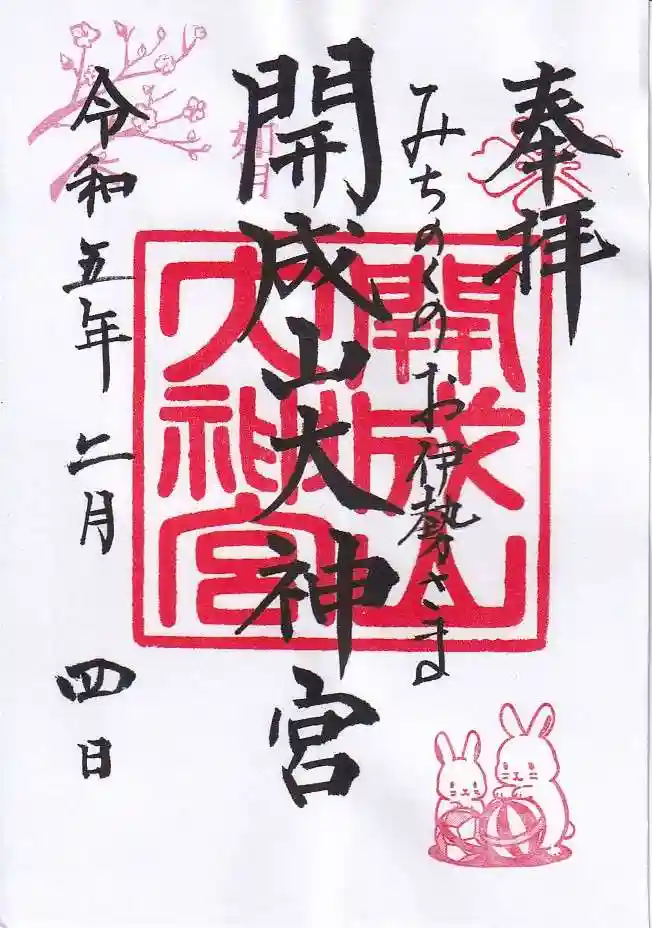 奉拝
みちのくのお伊勢さま
開成山大神宮
如月
開成山
大神宮
令和五年二月四日